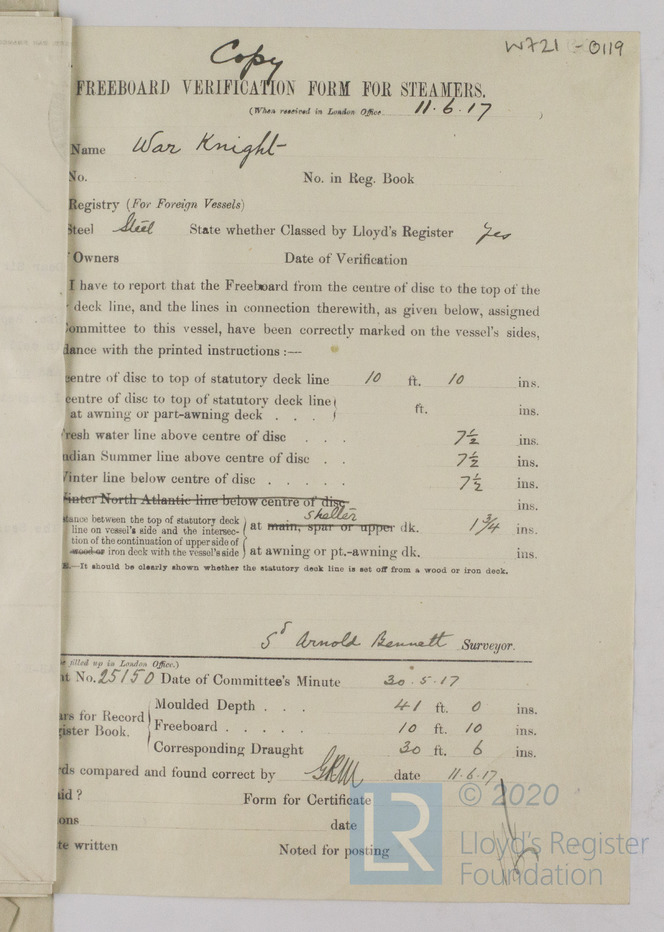 Copy
W721-0119
FREEBOARD VERIFICATION FORM FOR STEAMERS.
(When received in London Office 11.6.17 )
Name War Knight
No. No. in Reg. Book
Registry (For Foreign Vessels)
Steel Steel State whether Classed by Lloyd's Register Yes
Owners Date of Verification
I have to report that the Freeboard from the centre of disc to the top of the
deck line, and the lines in connection therewith, as given below, assigned
Committee to this vessel, have been correctly marked on the vessel's sides,
dance with the printed instructions :—
centre of disc to top of statutory deck line 10 ft. 10 ins.
centre of disc to top of statutory deck line
at awning or part-awning deck . . . ft. ins.
Fresh water line above centre of disc . . . 7½ ins.
ndian Summer line above centre of disc . . 7½ ins.
Winter line below centre of disc . . . . . 7½ ins.
Winter North Atlantic line below centre of disc ins.
shelter
stance between the top of statutory deck
line on vessel's side and the intersec-
tion of the continuation of upper side of
wood or iron deck with the vessel's side
at main, spar or upper dk. 1¾ ins.
at awning or pt.-awning dk. ins.
—It should be clearly shown whether the statutory deck line is set off from a wood or iron deck.
Sd Arnold Bennett Surveyor.
be filled up in London Office.)
rt No. 25150 Date of Committee's Minute 30.5.17
ars for Record
gister Book.
Moulded Depth . . . 41 ft. 0 ins.
Freeboard . . . . . 10 ft. 10 ins.
Corresponding Draught 30 ft. 6 ins.
rds compared and found correct by GRM date 11.6.17
aid ? Form for Certificate
ons date
te written Noted for posting
LR © 2020
Lloyd's Register
Foundation